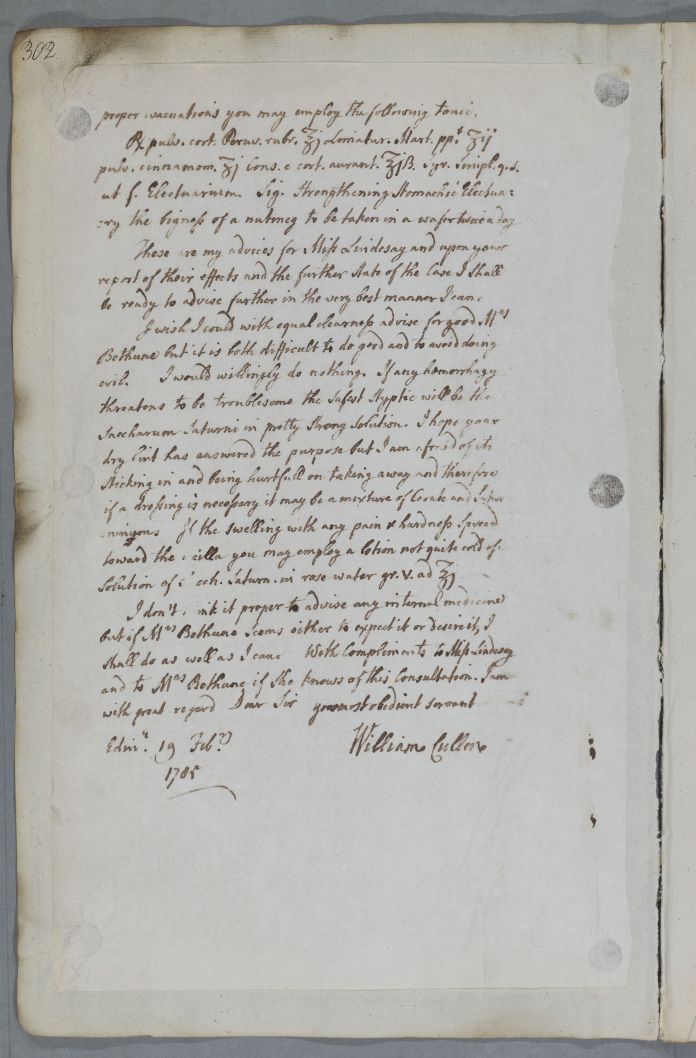 302
proper evacuations you may employ the following tonic.
℞ pulv. cort. Peruv. rubr. ℥j Limatur. Mart. ppt. ʒij
pulv. cinnamom. ʒj Cons. e cort. aurant. ℥jß. Syr. Simpl. q.s.
ut f. Electuarium. Sig. Strengthening Stomachic Electua=
=ry the bigness of a nutmeg to be taken in a wafer twice a day
These are my advices for Miss Lindesay and upon your
report of their effects and the further State of the Case I shall
be ready to advise further in the very best manner I can.
I wish I could with equal clearness advise for good Mrs
Bethune but it is both difficult to do good and to avoid doing
evil. I would willingly do nothing. If any hemorrhagy
threatens to be troublesome the safest Styptic will be the
Saccharum Saturni in pretty strong Solution. I hope your
dry Lint has answered the purpose but I am afraid of its
sticking in and being hurtfull on taking away and therefore
if a dressing is necessary it may be a mixture of Cerate and
If the swelling with any pain & hardness spread
toward the cilla you may employ a lotion not quite cold of
Solution of cch. Saturn. in rose water gr. v. ad ℥j
I don't ink it proper to advise any internal medicines
but if Mrs Bethune seems either to expect it or desire it, I
shall do as well as I can. With Compliments to Miss Lindesay
and to Mrs Bethune if she knows of this Consultation. I am
with great regard Dear Sir your most obedient servant
Edinr. 19 Febry William Cullen
1785